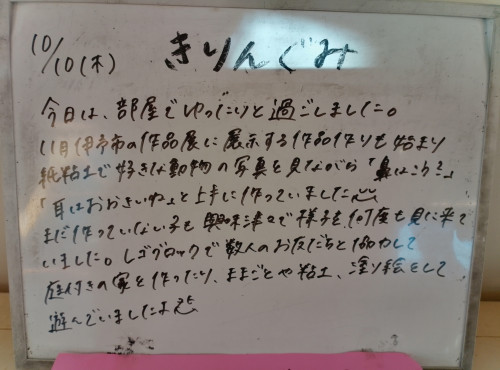 10/10(木) きりんぐみ
今日は、部屋でゆったりと過ごしました。
11月伊予市の作品展に展示する作品作りも始まり
紙粘土で好きな動物の写真を見ながら「鼻はこう?」
「耳はおおきいね」と上手に作っていました
まだ作っていない子も興味津々で様子を何度も見に来て
いました。レゴブロックで数人のお友だちと協力して
庭付きの家を作ったり、ままごとや粘土、塗り絵をして
遊んでいましたよ